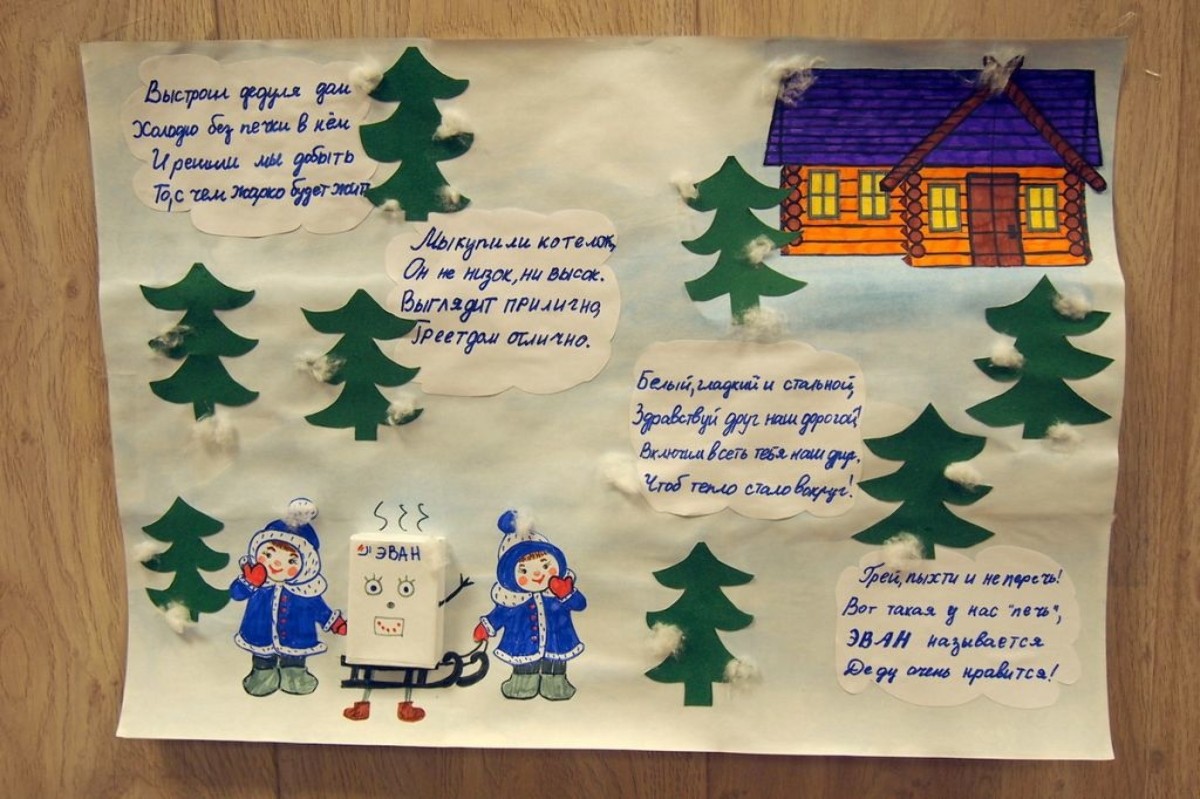 Выстроил дедуля дом
Холодно без печки в нём
И решили мы добыть
То, с чем жарко будет жить
Мы купили котелок,
Он не низок, ни высок.
Выглядит прилично,
Греет дом отлично.
Белый, гладкий и стальной,
Здравствуй друг наш дорогой!
Включим в сеть тебя наш друг,
Чтоб тепло стало вокруг!
Грей, пыхти и не перечь!
Вот такая у нас "печь",
ЭВАН называется
Деду очень нравится!
ЭВАН